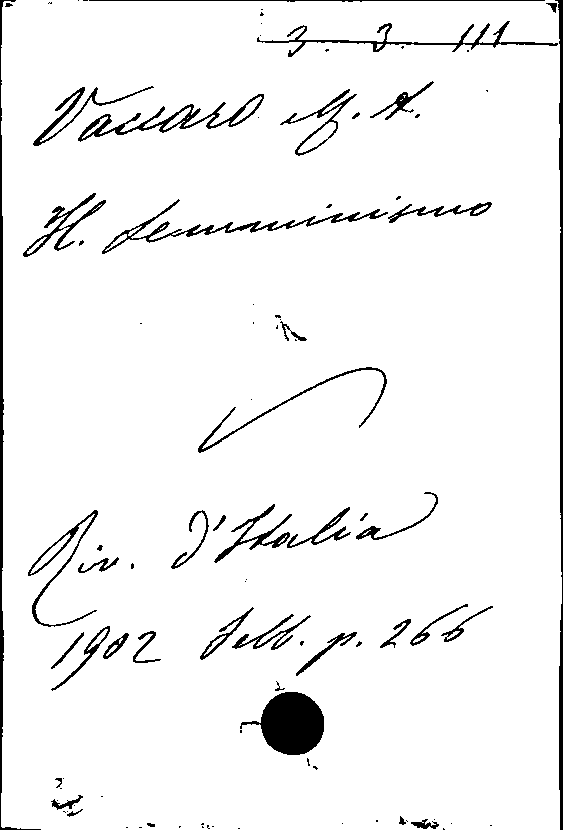 3. 3. 111
Vaccaro M. A.
Il femminismo
Riv. d'Italia
1902 Febb. p. 266